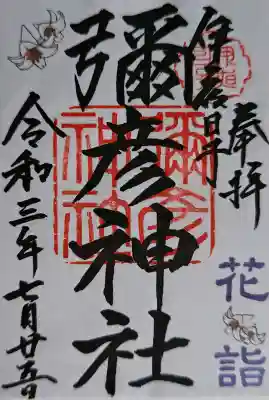 奉拝
彌彦神社
彌彦
神社
令和三年七月廿五日
花詣